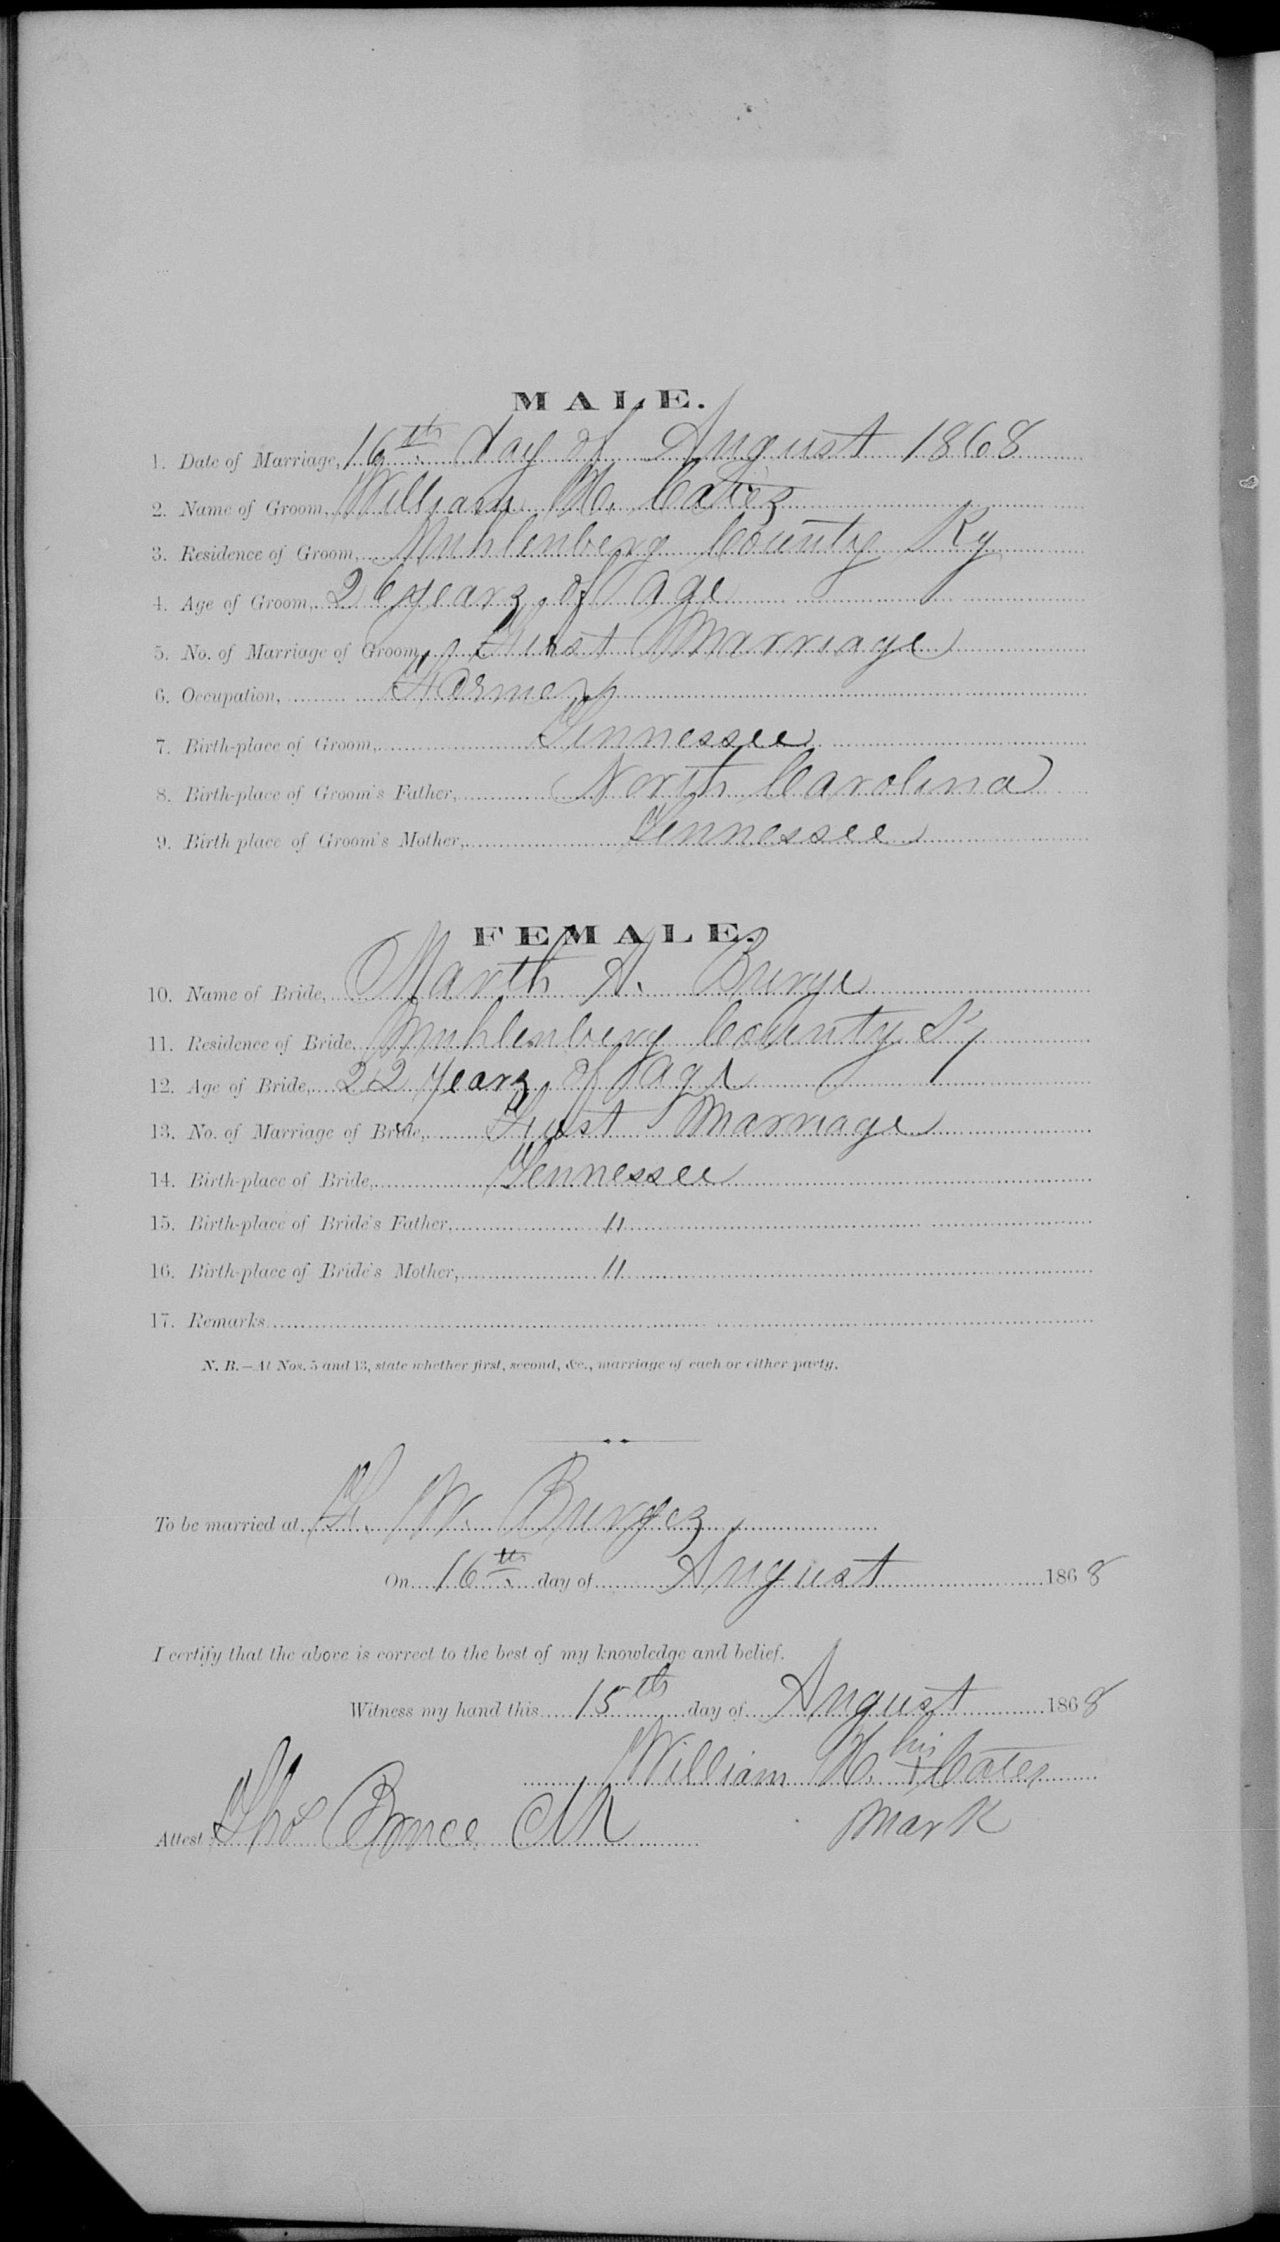 MALE.
1. Date of Marriage, 16th day of August 1868
2. Name of Groom, William H. Cates
3. Residence of Groom, Muhlenberg County Ky
4. Age of Groom, 26 years of age
5. No. of Marriage of Groom, First Marriage
6. Occupation, Farmer
7. Birth-place of Groom, Tennessee
8. Birth-place of Groom's Father, North Carolina
9. Birth place of Groom's Mother, Tennessee
FEMALE.
10. Name of Bride, Marth A. Burge
11. Residence of Bride, Muhlenberg County Ky
12. Age of Bride, 22 years of age
13. No. of Marriage of Bride, First Marriage
14. Birth-place of Bride, Tennessee
15. Birth-place of Bride's Father, "
16. Birth-place of Bride's Mother, "
17. Remarks
N. B.—At Nos. 5 and 13, state whether first, second, &c., marriage of each or either party.
To be married at W. Burges
On 16th day of August 1868
I certify that the above is correct to the best of my knowledge and belief.
Witness my hand this 15th day of August 1868
William H. his + Cates
mark
Attest: Tho Bruce Clk